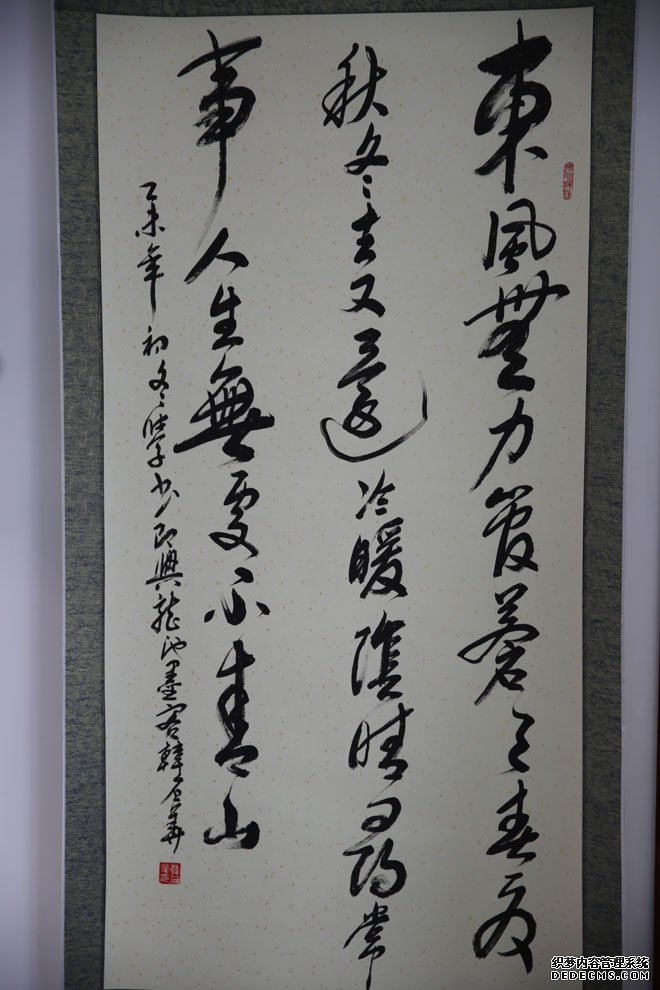 東風無力管蒼天春夏
秋冬去又還冷暖陰晴尋常
事人生無處不青山
乙未年初冬書即興龍池墨客韓石華
织梦内容管理系统
DEDECMS.COM